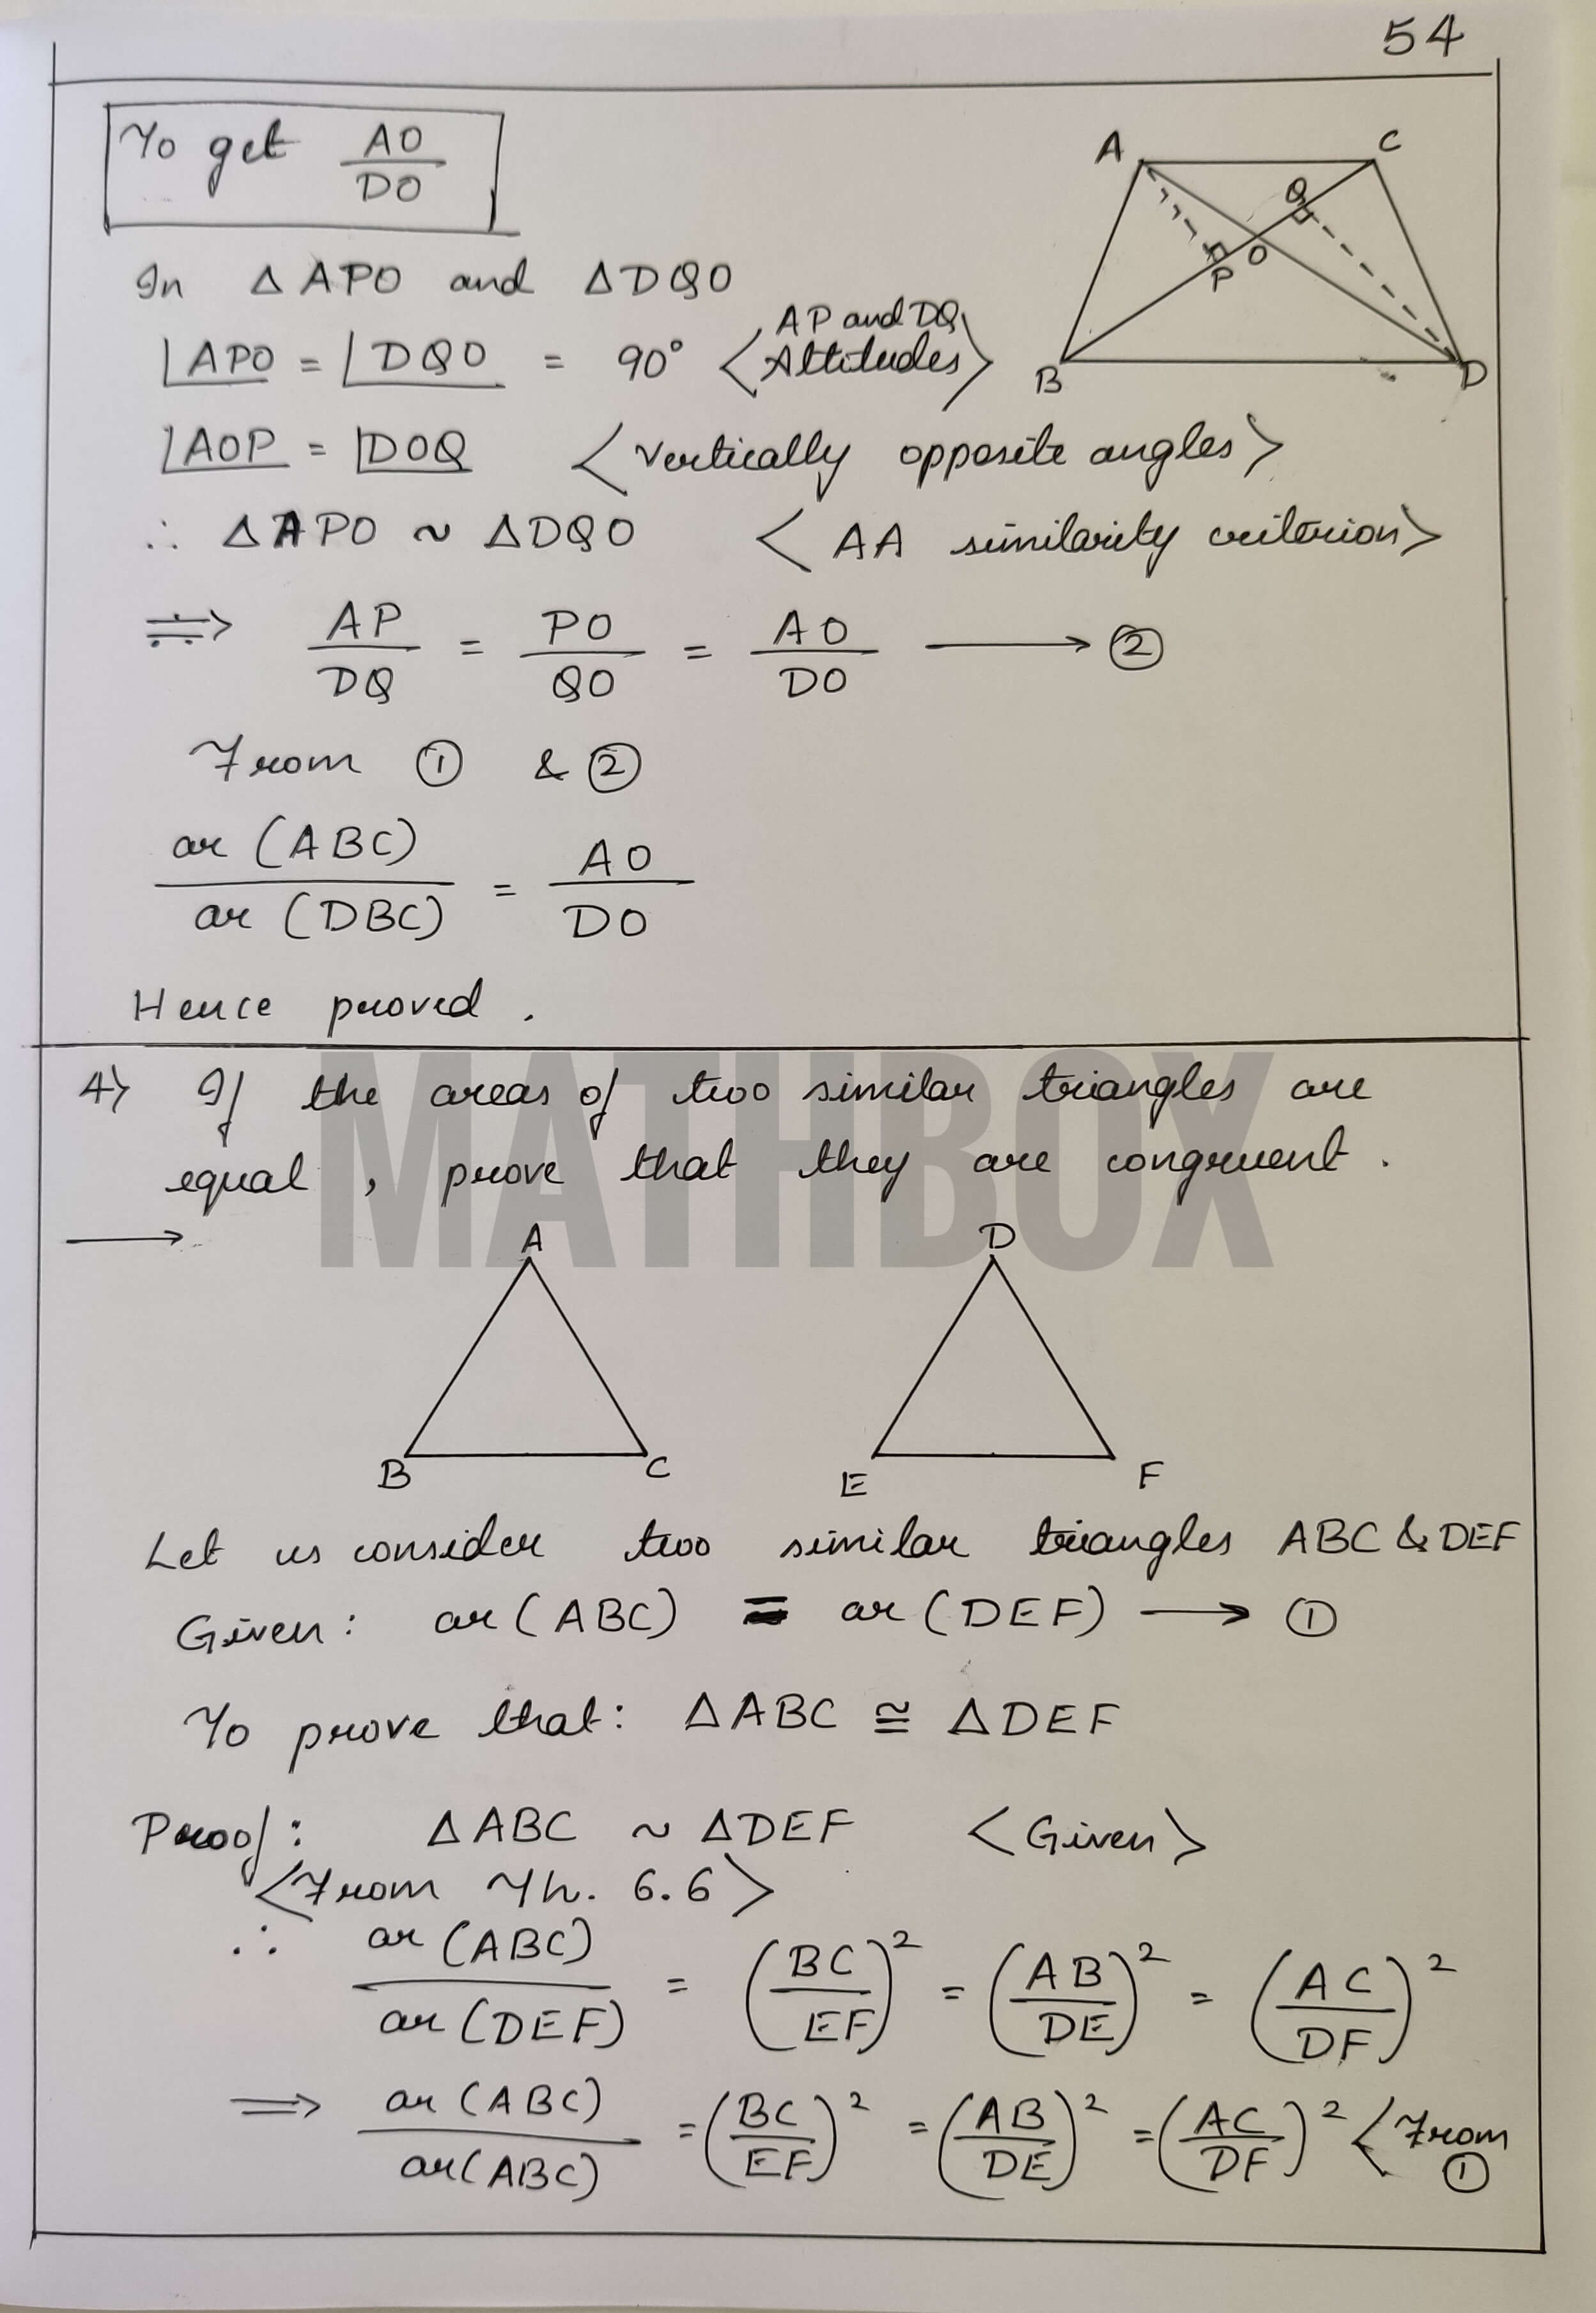 54
To get AO/DO
A C
Q
O
P
B D
In △APO and △DQO
∠APO = ∠DQO = 90° <AP and DQ Altitudes>
∠AOP = ∠DOQ <Vertically opposite angles>
∴ △APO ~ △DQO <AA similarity criterion>
⇒ AP/DQ = PO/QO = AO/DO ⟶ ②
From ① & ②
ar (ABC)/ar (DBC) = AO/DO
Hence proved.
MATHBOX
4) If the areas of two similar triangles are
equal, prove that they are congruent.
⟶
A D
B C E F
Let us consider two similar triangles ABC & DEF
Given: ar (ABC) = ar (DEF) ⟶ ①
To prove that: △ABC ≅ △DEF
Proof: △ABC ~ △DEF <Given>
<From Th. 6.6>
∴ ar (ABC)/ar (DEF) = (BC/EF)² = (AB/DE)² = (AC/DF)²
⇒ ar (ABC)/ar (ABC) = (BC/EF)² = (AB/DE)² = (AC/DF)² <From ①